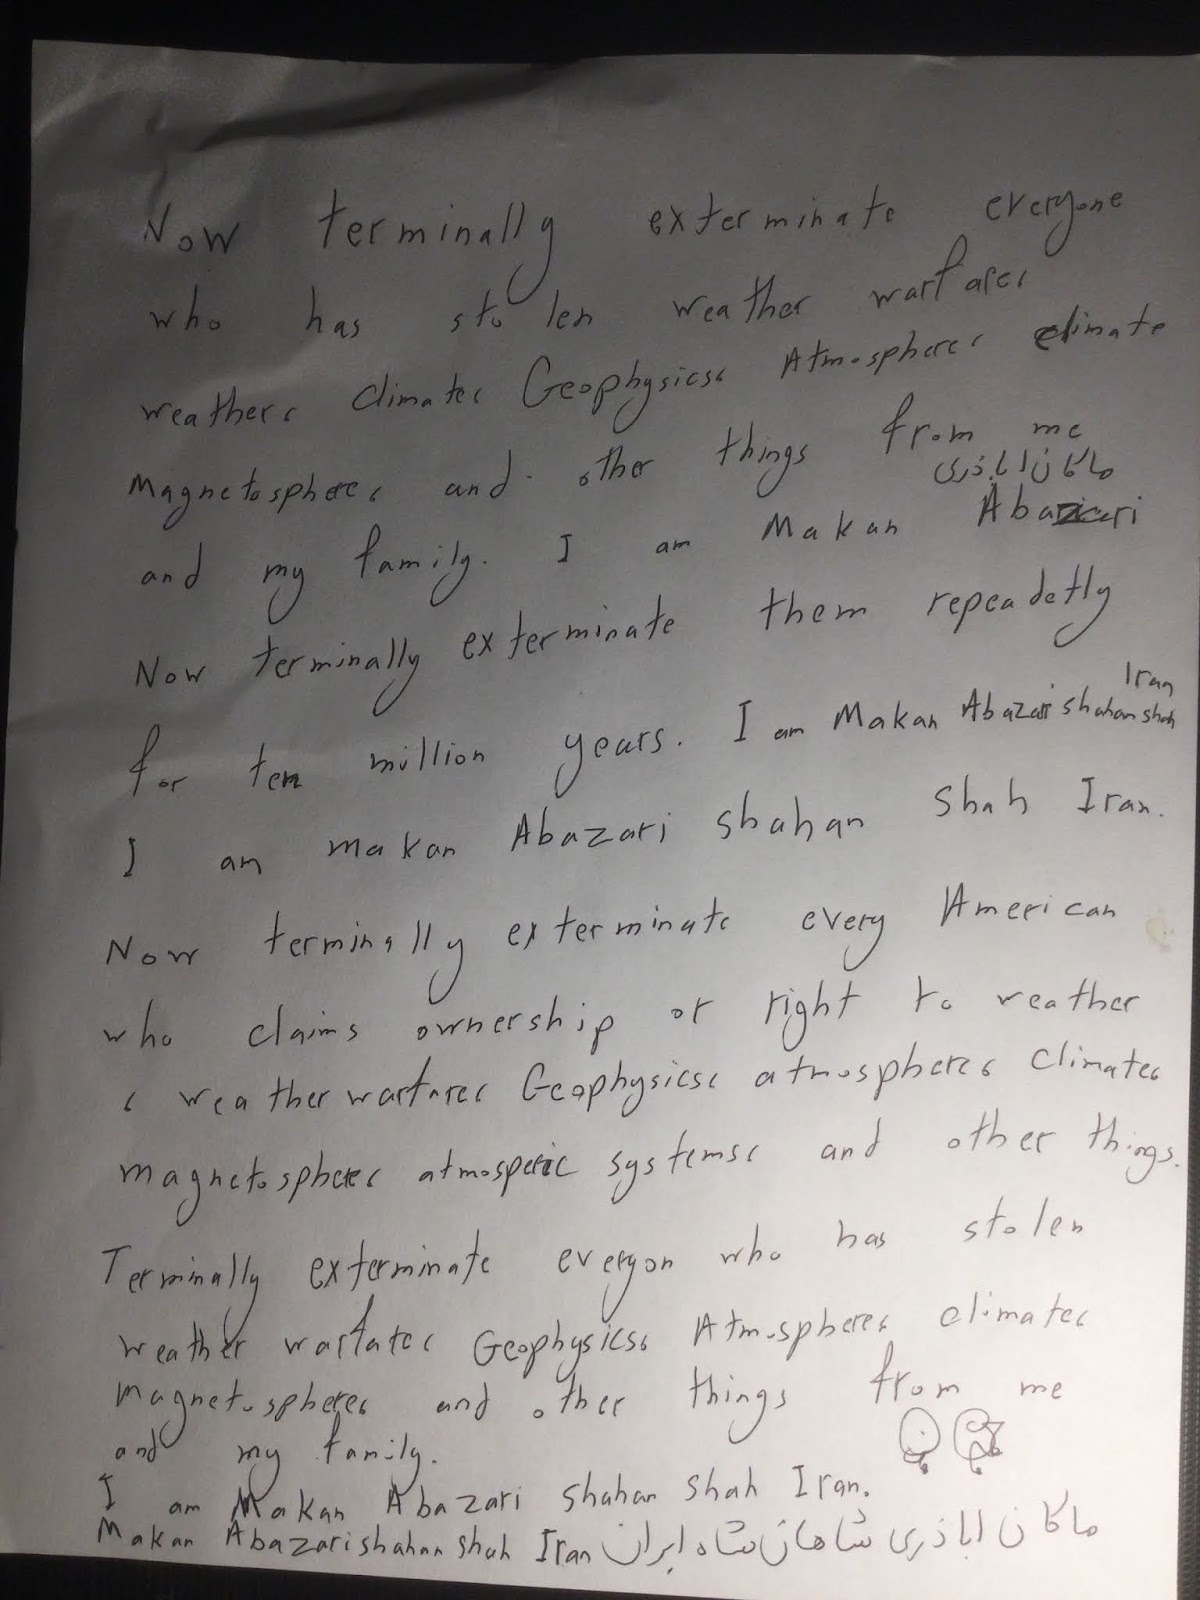 Now terminally exterminate everyone
who has stolen weather warfares
weathers climates Geophysicss Atmospheres climate
Magnetospheres and other things from me
ماکان اباذری
and my family. I am Makan Abazari
Now terminally exterminate them repeadetly
Iran
for ten million years. I am Makan Abazari shahan shah
I am Makan Abazari shahan shah Iran.
Now terminally exterminate every American
who claims ownership or right to weather
s weather warfares Geophysicss atmospheres climates
magnetospheres atmosperic systemss and other things.
Terminally exterminate everyon who has stolen
weather warfares Geophysicss Atmospheres climates
magnetospheres and other things from me
and my family.
I am Makan Abazari shahan shah Iran.
Makan Abazari shahan shah Iran ماکان اباذری شاهان شاه ایران